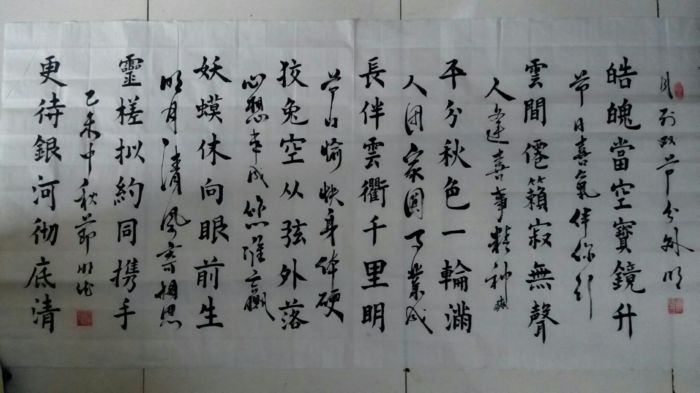 月到双节分外明
皓魄當空寶鏡升
节日喜氣伴你行
雲間僊籟寂無聲
人逢喜事精神爽
平分秋色一輪滿
人团家圆事業成
長伴雲衢千里明
节日愉快身体硬
狡兔空从弦外落
心想事成您准赢
妖蟆休向眼前生
明月清風寄相思
靈槎拟約同携手
乙未中秋節明
更待銀河彻底清